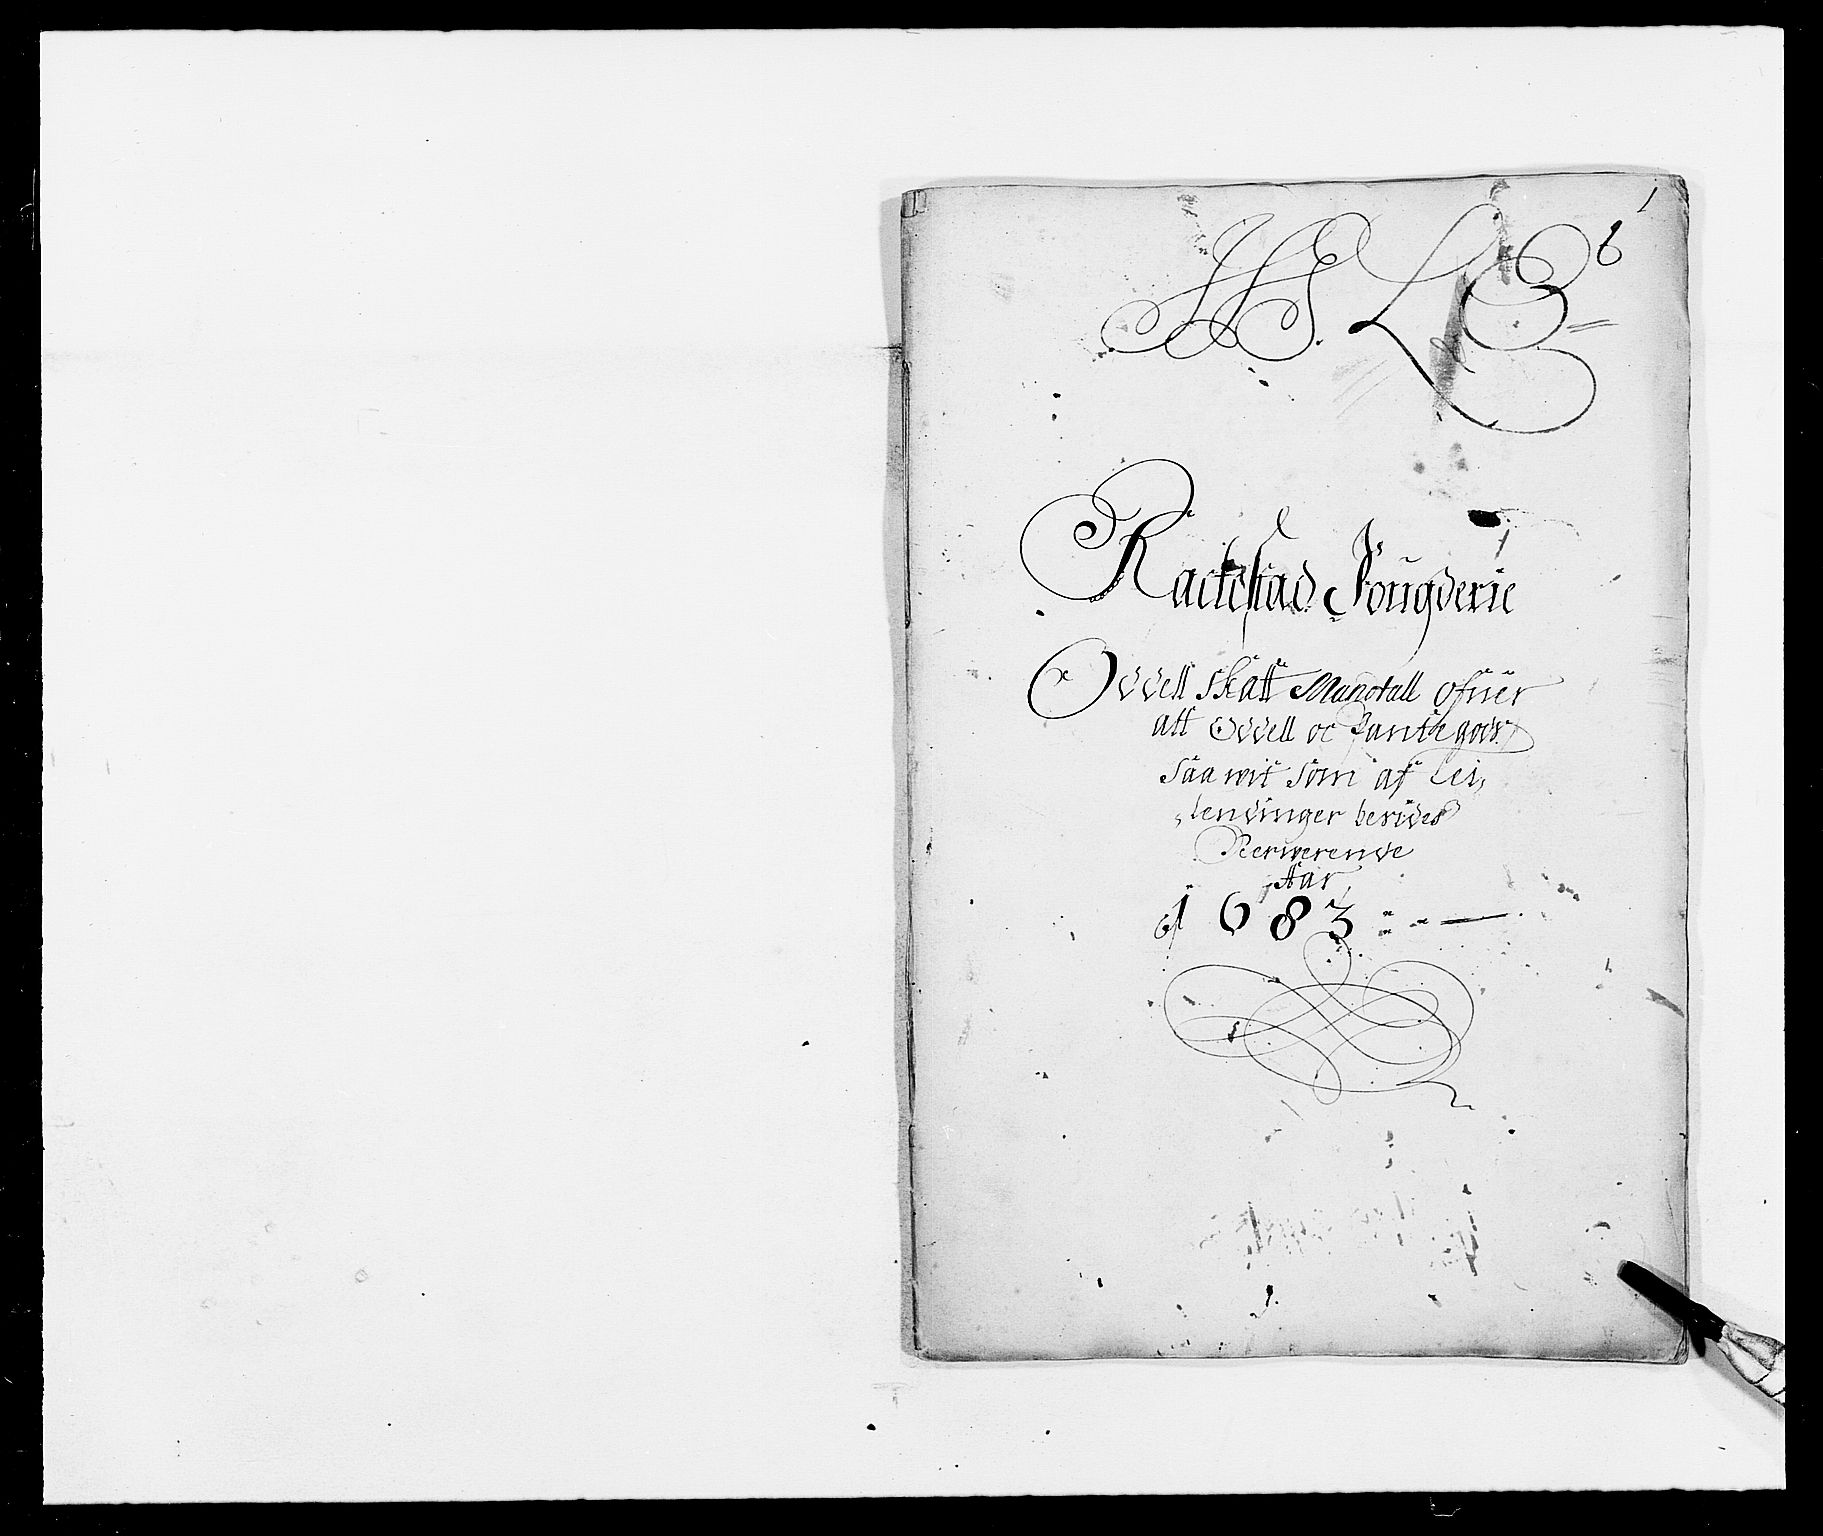 1
6
Rackestad Fougderie
Odell skatt Mandtall ofuer
alt Odell oc Pantegods
saa wit som af Lei,
,lendinger besides
Nerwerende
Aar
1683